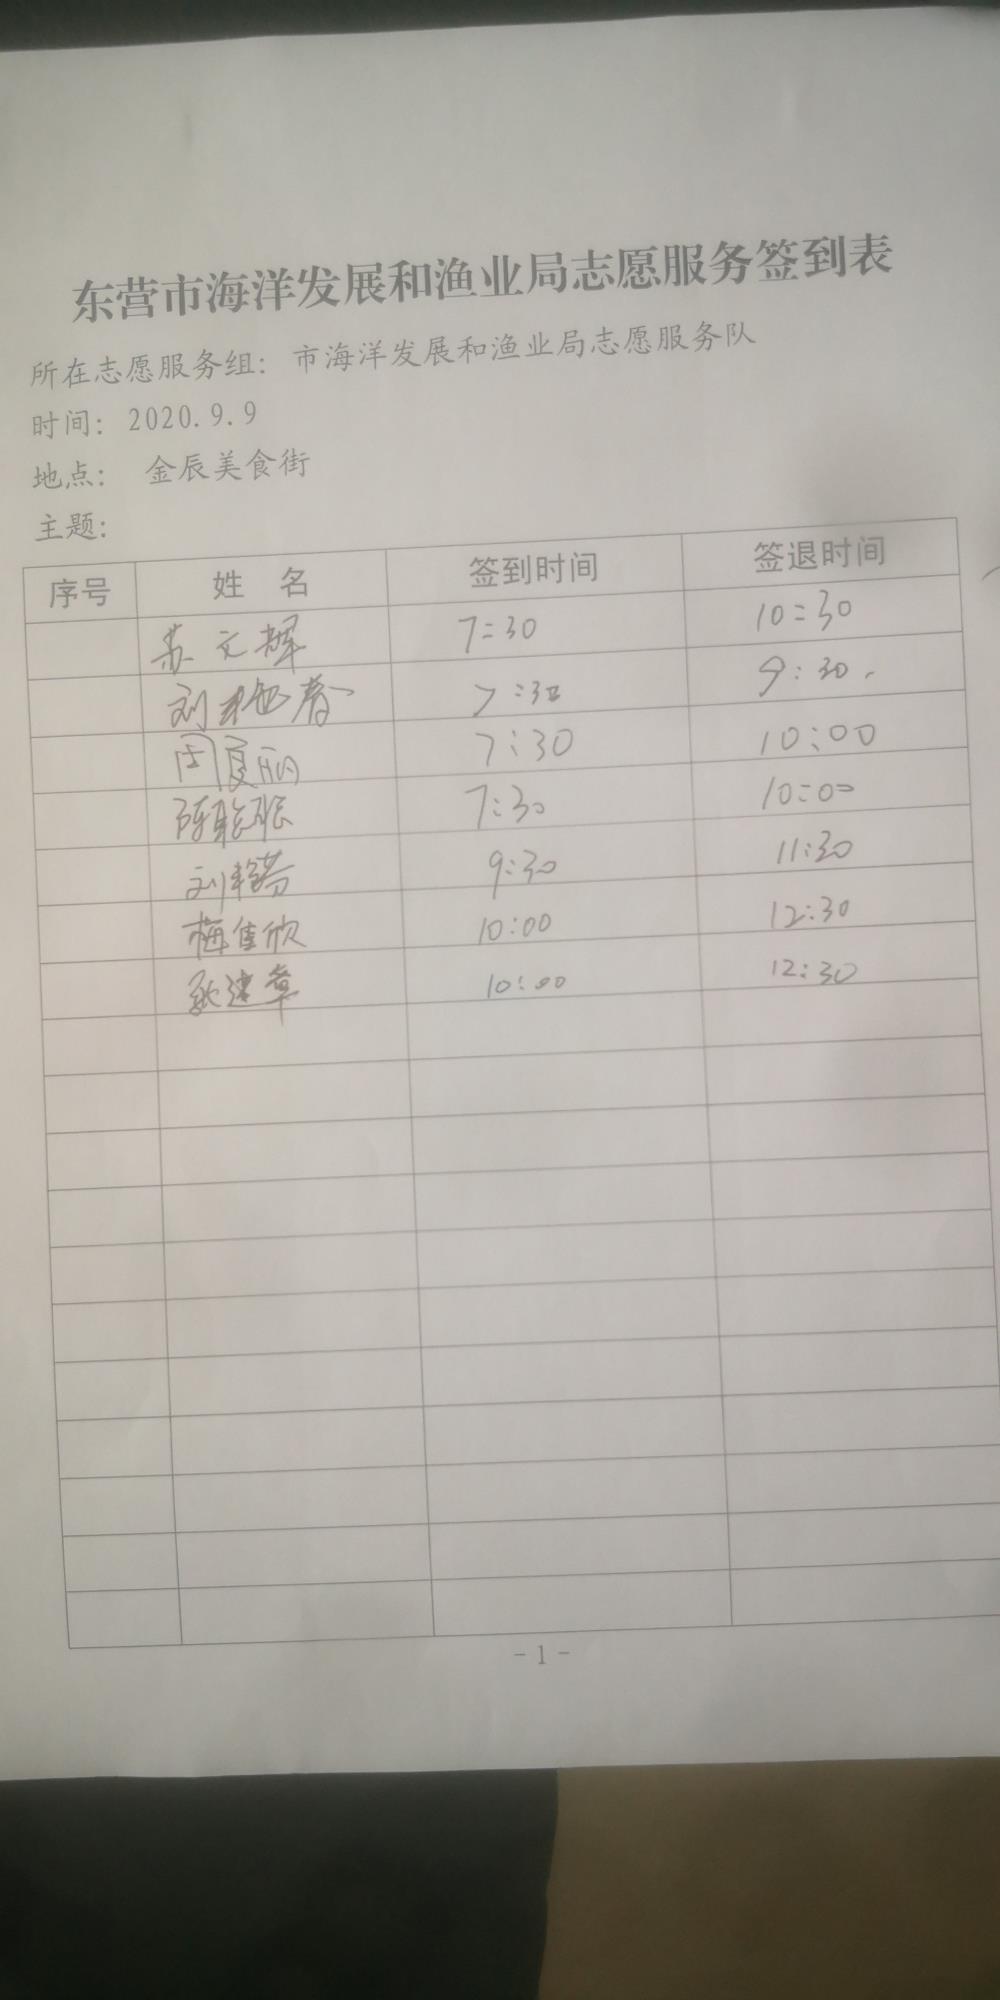 东营市海洋发展和渔业局志愿服务签到表
所在志愿服务组：市海洋发展和渔业局志愿服务队
时间：2020.9.9
地点： 金辰美食街
主题：
序号 姓 名 签到时间 签退时间
苏文辉 7:30 10:30
刘艳春 7:30 9:30.
闫夏丽 7:30 10:00
陈聪聪 7:30 10:00
刘艳芬 9:30 11:30
梅佳欣 10:00 12:30
耿建章 10:00 12:30
- 1 -